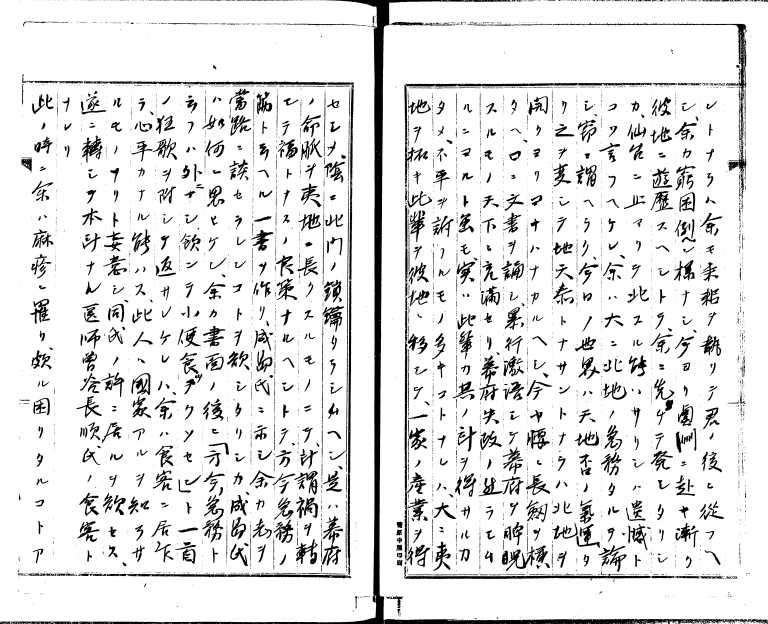 レトナラハ余モ耒耜ヲ執リテ君ノ後ニ従フヘ
シ余カ窮困例ヘン様ナシ今ヨリ奥州ニ赴ヤ漸ク
彼地ニ遊歴スヘントテ余ニ先ケテ発セタリシ
カ仙台ニ止マリテ北スル能ハサリシハ遺憾ト
コソ言フヘケレ余ハ大ニ北地ノ急務タルヲ論
シ窃ニ謂ヘラク今日ノ世界ハ天地否ノ氣運
リ之ヲ変シテ地天泰トナサントナラハ北地ヲ
開クヨリマナハナカルヘシ今ヤ慢ニ長劔ヲ横
タヘ口ニ文書ヲ論シ暴行激語シテ幕府ヲ睥睨
スルモノ天下ニ充満セリ幕府失政ノ然ラセム
ルニヨルト虽モ実ハ此輩カ其ノ計ヲ得サルカ
タメ不平ヲ訴フルモノ多キコトナレハ大ニ夷
地ヲ拓キ此輩ヲ彼地ニ移シテ一家ノ産業ヲ得
セシメ陰ニ此門ノ鎖鑰タラシムヘシ是ハ幕府
ノ命脈ヲ夷地ニ長クスルモノニテ計謂禍ヲ轉
シテ福トナスノ良策ナルヘシトテ方今急務ノ
筋ト云ヘル一書ヲ作リ成島氏ニ示シ余カ志ヲ
當路ニ談セラレンコトヲ欲シタリシカ成島氏
ハ如何ニ思ヒケレ余カ書面ノ後ニ「方今急務ト
云フハ外ニサシ飲ンテ小便食テクソセヒト一首
ノ狂歌ヲ附シテ返サレケレハ余ハ食客ニ居ル
ラ心平カナル能ハス此人ハ國家アルヲ知ラサ
ルモノナリト妄意シ同氏ノ許ニ居ルヲ欲セス
遂ニ轉シテ本計ナル医師曽谷長順氏ノ食客ト
ナレリ
此ノ時ニ余ハ麻疹ニ罹リ頗ル困リタルコトア